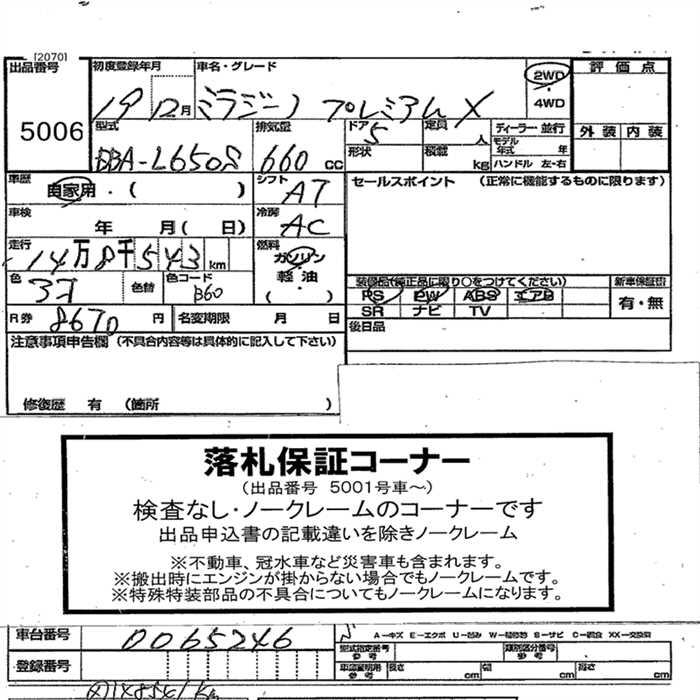 [2070]
出品番号 初度登録年月 車名・グレード 評価点
5006 19 12月 ミラジーノ プレミアム X 2WD・4WD
型式 排気量 ドア 定員 ディーラー・並行 外装 内装
DBA-L650S 660cc 5 人 モデル年式 年
形状 積載 kg ハンドル 左・右
車歴 自家用・( ) シフト AT セールスポイント (正常に機能するものに限ります)
車検 年 月( 日) 冷房 AC
走行 14万8千543km 燃料 ガソリン
軽油
( )
色 色替 色コード B60 装備品(純正品に限り○をつけてください) 新車保証書
PS PW ABS エアB 有・無
SR ナビ TV
R券 8670円 名変期限 月 日 後日品
注意事項申告欄 (不具合内容等は具体的に記入して下さい)
修復歴 有 (箇所 )
落札保証コーナー
(出品番号 5001号車~)
検査なし・ノークレームのコーナーです
出品申込書の記載違いを除きノークレーム
※不動車、冠水車など災害車も含まれます。
※搬出時にエンジンが掛からない場合でもノークレームです。
※特殊特装部品の不具合についてもノークレームになります。
車台番号 0065246 A-キズ E-エクボ U-凹み W-補修跡 S-サビ C-腐食 XX-交換済
型式指定番号 参考 類別区分番号 参考
登録番号 車認証明用 参考 長さ cm 幅 cm 高さ cm